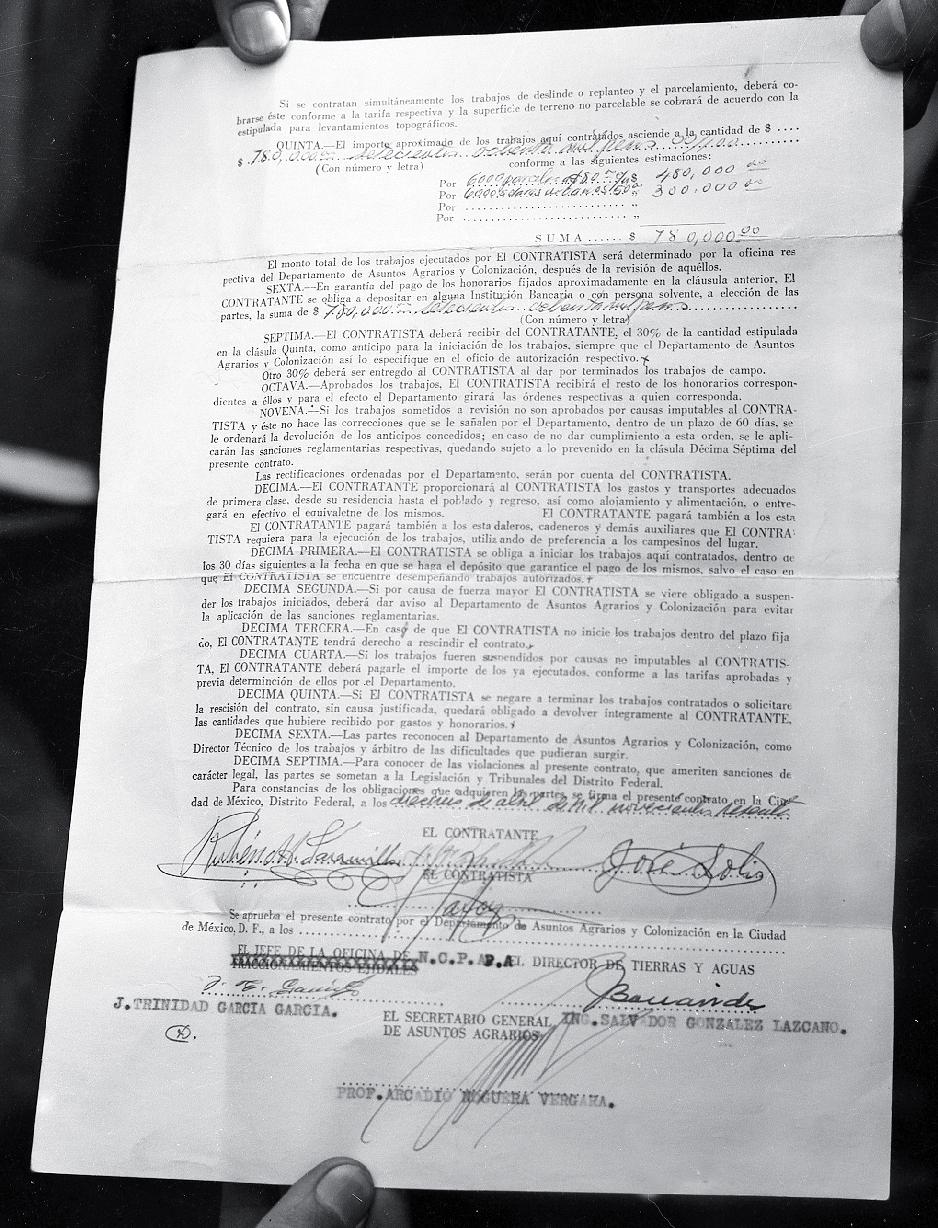 Si se contratan simultáneamente los trabajos de deslinde o replanteo y el parcelamiento, deberá co-
brarse éste conforme a la tarifa respectiva y la superficie de terreno no parcelable se cobrará de acuerdo con la
estipulada para levantamientos topográficos.
QUINTA.—El importe aproximado de los trabajos aquí contratados asciende a la cantidad de $ ....
$ 780,000.00 setecientos ochenta mil pesos 00/100
(Con número y letra) conforme a las siguientes estimaciones:
Por 6000 parcelas a $80.00 $ 480,000 00
Por 6000 solares urbanos a $50.00 " 300,000 00
Por .................... "
Por .................... "
SUMA ...... $ 780,000.00
El monto total de los trabajos ejecutados por El CONTRATISTA será determinado por la oficina res
pectiva del Departamento de Asuntos Agrarios y Colonización, después de la revisión de aquéllos.
SEXTA.—En garantía del pago de los honorarios fijados aproximadamente en la cláusula anterior, El
CONTRATANTE se obliga a depositar en alguna Institución Bancaria o con persona solvente, a elección de las
partes, la suma de $ 780,000.00 setecientos ochenta mil pesos
(Con número y letra)
SEPTIMA.—El CONTRATISTA deberá recibir del CONTRATANTE, el 30% de la cantidad estipulada
en la clásula Quinta, como anticipo para la iniciación de los trabajos, siempre que el Departamento de Asuntos
Agrarios y Colonización así lo especifique en el oficio de autorización respectivo.
Otro 30% deberá ser entregdo al CONTRATISTA al dar por terminados los trabajos de campo.
OCTAVA.—Aprobados los trabajos, El CONTRATISTA recibirá el resto de los honorarios correspon-
dientes a éllos y para el efecto el Departamento girará las órdenes respectivas a quien corresponda.
NOVENA.—Si los trabajos sometidos a revisión no son aprobados por causas imputables al CONTRA-
TISTA y éste no hace las correcciones que se le señalen por el Departamento, dentro de un plazo de 60 días, se
le ordenará la devolución de los anticipos concedidos; en caso de no dar cumplimiento a esta orden, se le apli-
carán las sanciones reglamentarias respectivas, quedando sujeto a lo prevenido en la clásula Décima Séptima del
presente contrato.
Las rectificaciones ordenadas por el Departamento, serán por cuenta del CONTRATISTA.
DECIMA.—El CONTRATANTE proporcionará al CONTRATISTA los gastos y transportes adecuados
de primera clase, desde su residencia hasta el poblado y regreso, así como alojamiento y alimentación, o entre-
gará en efectivo el equivaletne de los mismos. El CONTRATANTE pagará también a los esta
El CONTRATANTE pagará también a los estadaleros, cadeneros y demás auxiliares que El CONTRA-
TISTA requiera para la ejecución de los trabajos, utilizando de preferencia a los campesinos del lugar.
DECIMA PRIMERA.—El CONTRATISTA se obliga a iniciar los trabajos aquí contratados, dentro de
los 30 días siguientes a la fecha en que se haga el depósito que garantice el pago de los mismos, salvo el caso en
que El CONTRATISTA se encuentre desempeñando trabajos autorizados.
DECIMA SEGUNDA.—Si por causa de fuerza mayor El CONTRATISTA se viere obligado a suspen-
der los trabajos iniciados, deberá dar aviso al Departamento de Asuntos Agrarios y Colonización para evitar
la aplicación de las sanciones reglamentarias.
DECIMA TERCERA.—En caso de que El CONTRATISTA no inicie los trabajos dentro del plazo fija
do, El CONTRATANTE tendrá derecho a rescindir el contrato.
DECIMA CUARTA.—Si los trabajos fueren suspendidos por causas no imputables al CONTRATIS-
TA, El CONTRATANTE deberá pagarle el importe de los ya ejecutados, conforme a las tarifas aprobadas y
previa determinción de ellos por el Departamento.
DECIMA QUINTA.—Si El CONTRATISTA se negare a terminar los trabajos contratados o solicitare
la rescisión del contrato, sin causa justificada, quedará obligado a devolver íntegramente al CONTRATANTE,
las cantidades que hubiere recibido por gastos y honorarios.
DECIMA SEXTA.—Las partes reconocen al Departamento de Asuntos Agrarios y Colonización, como
Director Técnico de los trabajos y árbitro de las dificultades que pudieran surgir.
DECIMA SEPTIMA.—Para conocer de las violaciones al presente contrato, que ameriten sanciones de
carácter legal, las partes se someten a la Legislación y Tribunales del Distrito Federal.
Para constancias de las obligaciones que adquieren las partes, se firma el presente contrato en la Ciu
dad de México, Distrito Federal, a los dieciseis de abril de mil novecientos sesenta
EL CONTRATANTE
Rubén M. Jaramillo José Solis
EL CONTRATISTA
Se aprueba el presente contrato por el Departamento de Asuntos Agrarios y Colonización en la Ciudad
de México, D. F., a los
EL JEFE DE LA OFICINA DE N.C.P.A.P.A EL DIRECTOR DE TIERRAS Y AGUAS
FRACCIONAMIENTOS EJIDALES
J. TRINIDAD GARCIA GARCIA. ING. SALVADOR GONZALEZ LAZCANO.
EL SECRETARIO GENERAL
DE ASUNTOS AGRARIOS
PROF. ARCADIO NOGUERA VERGARA.